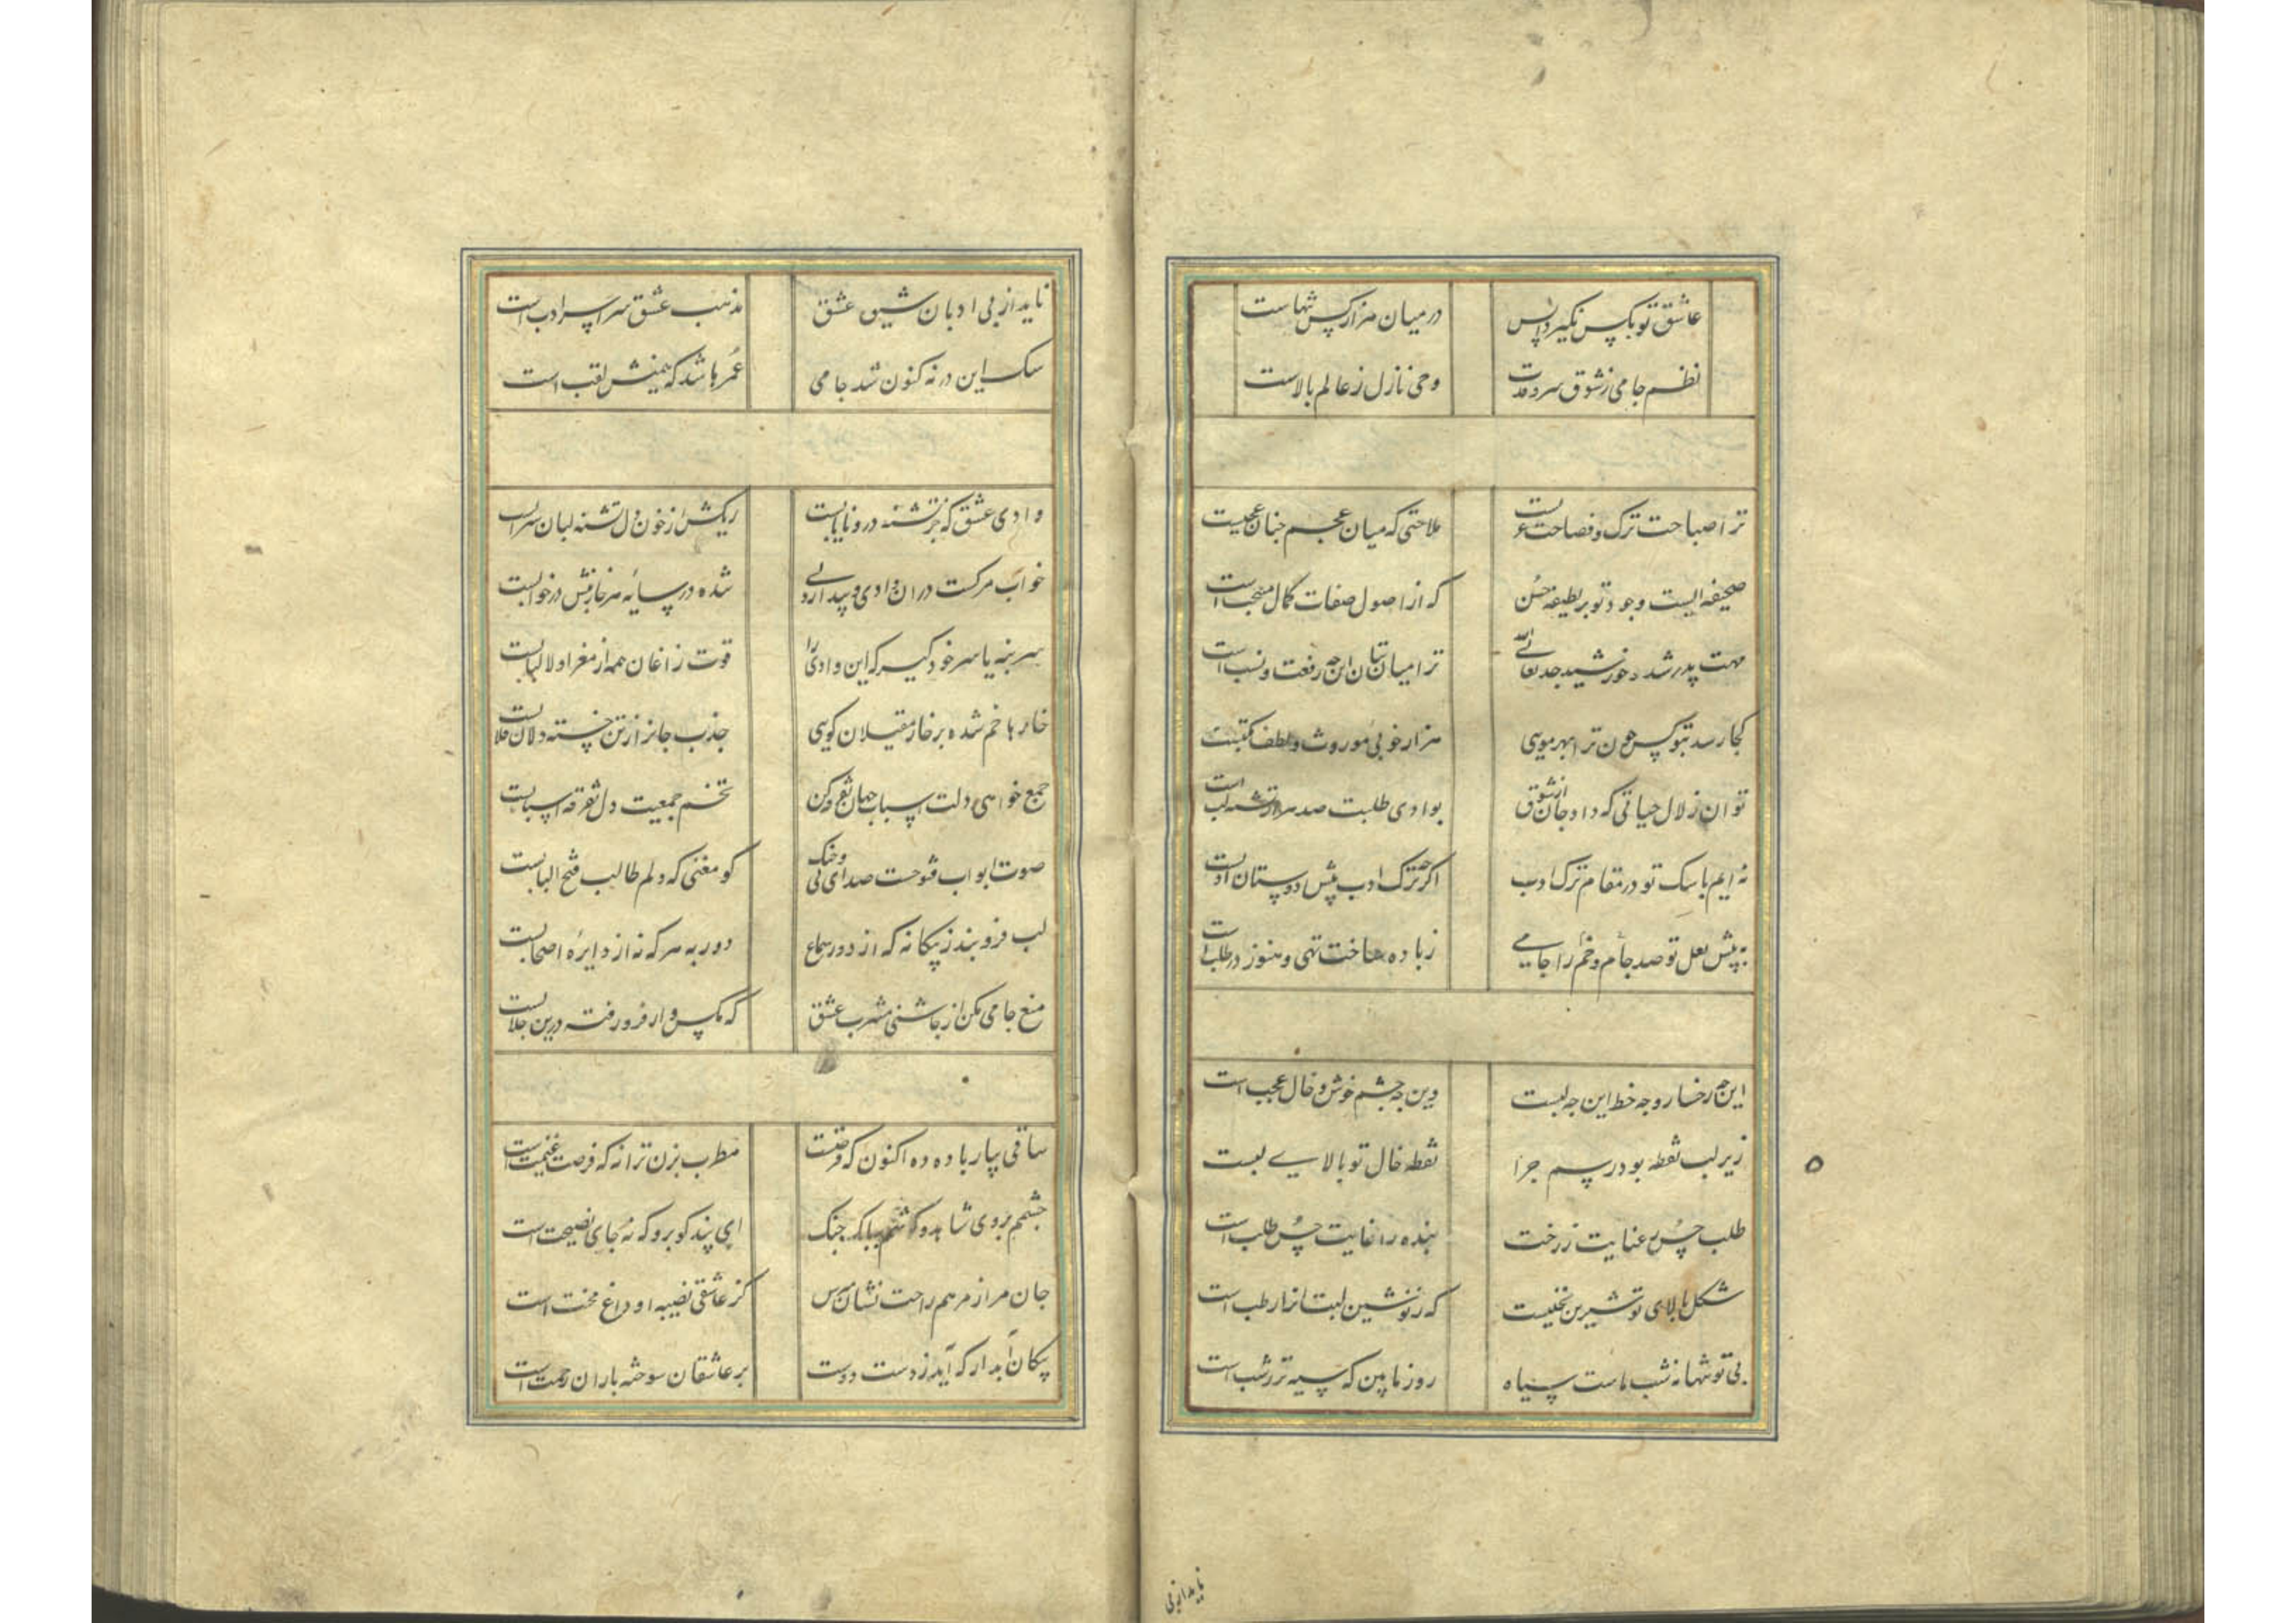 عاشق تو بکس نگیرد انس
در میان هزار کس تنهاست
نظم جامی ز شوق سرو قدت
وحی نازل ز عالم بالاست
ترا صباحت ترک و فصاحت عربست
ملاحتی که میان عجم چنان عجبست
صحیفه ایست وجود تو بر لطیفه حسن
که از اصول صفات کمال منتخب است
مهت پدر شد و خورشید جد تعالی الله
ترا میان بتان این چه رفعت و نسب است
کجا رسد بتو کس چون ترا بهر مویی
هزار خوبی موروث و لطف مکتسبست
تو آن زلال حیاتی که داد جان از شوق
بوادی طلبت صد هزار تشنه لب است
نه ایم با سگ تو در مقام ترک ادب
اگر چه ترک ادب پیش دوستان ادبست
به پیش لعل تو صد جام و خم را جامی
ز باده ساخت تهی و هنوز در طلب است
این چه رخسار و چه خط این چه لبست
وین چه چشم خوش و خال عجب است
زیر لب نقطه بود رسم چرا
نقطه خال تو بالای لبست
طلب حسن عنایت ز رخت
بنده را غایت حسن طلب است
شکل بالای تو شیرین نخلیست
که ز نوشین لبت آنرا رطب است
بی تو تنها نه شب ماست سیاه
روز ما بین که سیه تر ز شب است
ناید از بی
ناید از بی ادبان شیوه عشق
مذهب عشق سراسر ادب است
سگ این در نه کنون شد جامی
عمرها شد که همینش لقب است
وادی عشق که جز تشنه درو نایابست
ریگش از خون دل تشنه لبان سیرابست
خواب مرگست در آن وادی و بیدار دلی
شده در سایه هر خاربنش در خوابست
سر بنه یا سر خود گیر که این وادی را
قوت زاغان همه از مغز اولوالالبابست
خارها خم شده بر خار مقیلان گویی
جذب جانرا ز تن خسته دلان قلابست
جمع خواهی دلت اسباب جهان تفرقه کن
تخم جمعیت دل تفرقه اسبابست
صوت ابواب فتوحست صدای نی و چنگ
کو مغنی که دلم طالب فتح البابست
لب فرو بند ز بیگانه که از دور سماع
دور به هر که نه از دایره اصحابست
منع جامی مکن از چاشنی مشرب عشق
که مگس وار فرو رفته درین جلابست
ساقی بیار باده ده اکنون که فرصتست
مطرب بزن ترانه که فرصت غنیمت است
چشمم بروی شاهد و گوشم ببانگ چنگ
ای پند گو برو که نه جای نصیحت است
جان مرا ز مرهم راحت نشان مپرس
کز عاشقی نصیبه او داغ محنت است
پیکان آبدار که آید ز دست دوست
بر عاشقان سوخته باران رحمت است